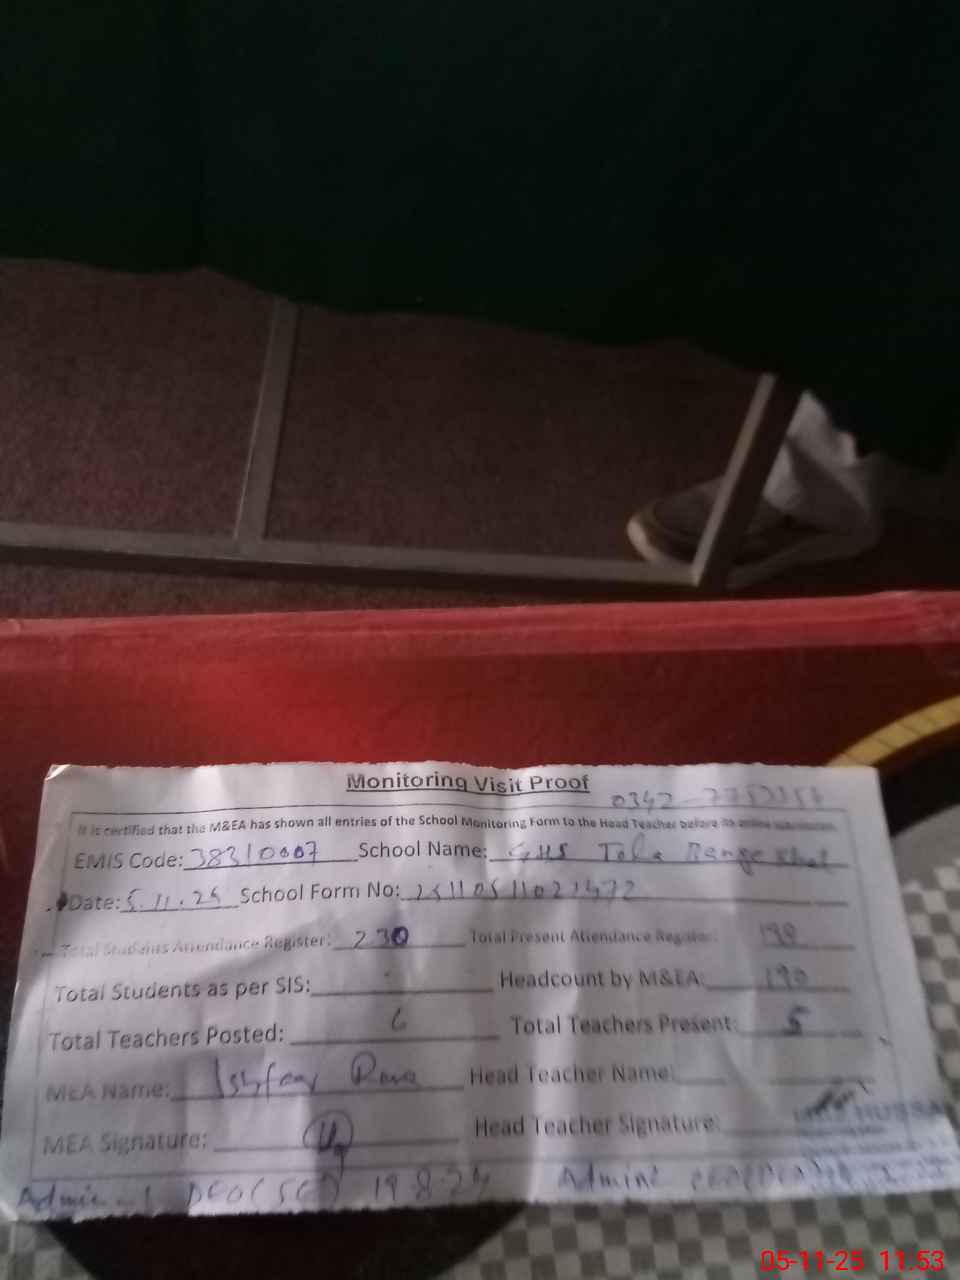 Monitoring Visit Proof
It is certified that the M&EA has shown all entries of the School Monitoring Form to the Head Teacher before its online submission
EMIS Code: 38310007 School Name: GHS Tola Bange Khel
Date: 5.11.25 School Form No: 25110511021472
Total Students Attendance Register: 230 Total Present Attendance Register: 190
Total Students as per SIS: - Headcount by M&EA: 190
Total Teachers Posted: 6 Total Teachers Present: 5
MEA Name: Head Teacher Name:
MEA Signature: Head Teacher Signature:
HUSSA
Admin-1 DEO(SE) 19.8.24 Admin2
05-11-25 11.53